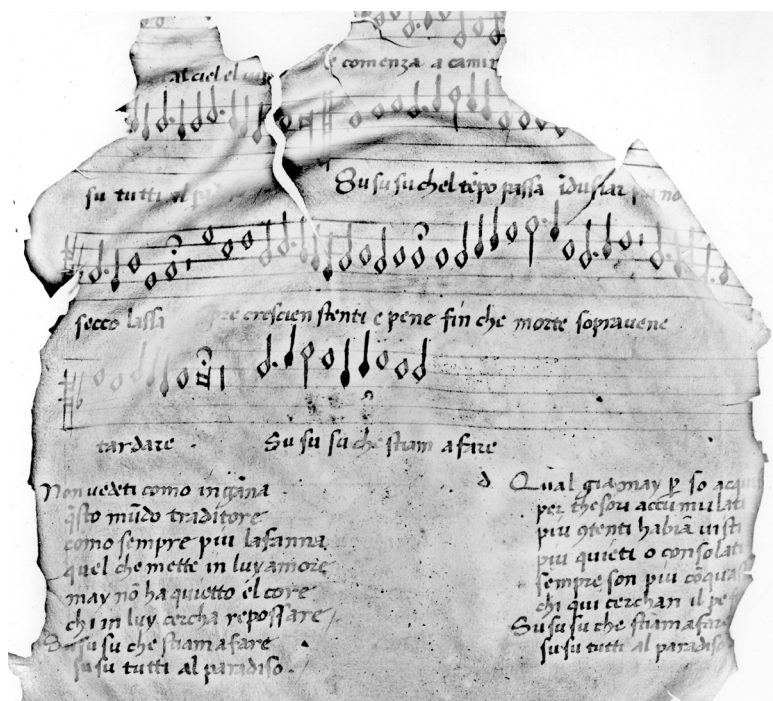 al ciel el
comenza a camin
su tutti al
Su su su chel tẽpo passa ĩdusiar piu no
secco lassa
pre crescien stenti e pene fin che morte sopravene
tardare . Su su su che stiam a fare
Non vedeti como ingãna
q̃sto mũdo traditore
como sempre piu lafanna
quel che mette in luy amore
may nõ ha quietto el core
chi in luy cercha repossare
Su su su che stiam a fare
su su tutti al paradiso .
d Qual giamay ꝑ so acqui
per thesori accumulati
piu ꝯtenti habiã visti
piu quieti o consolati
sempre son piu cõquas
chi qui cerchan il
Su su su che stiam a fare
su su tutti al paradiso